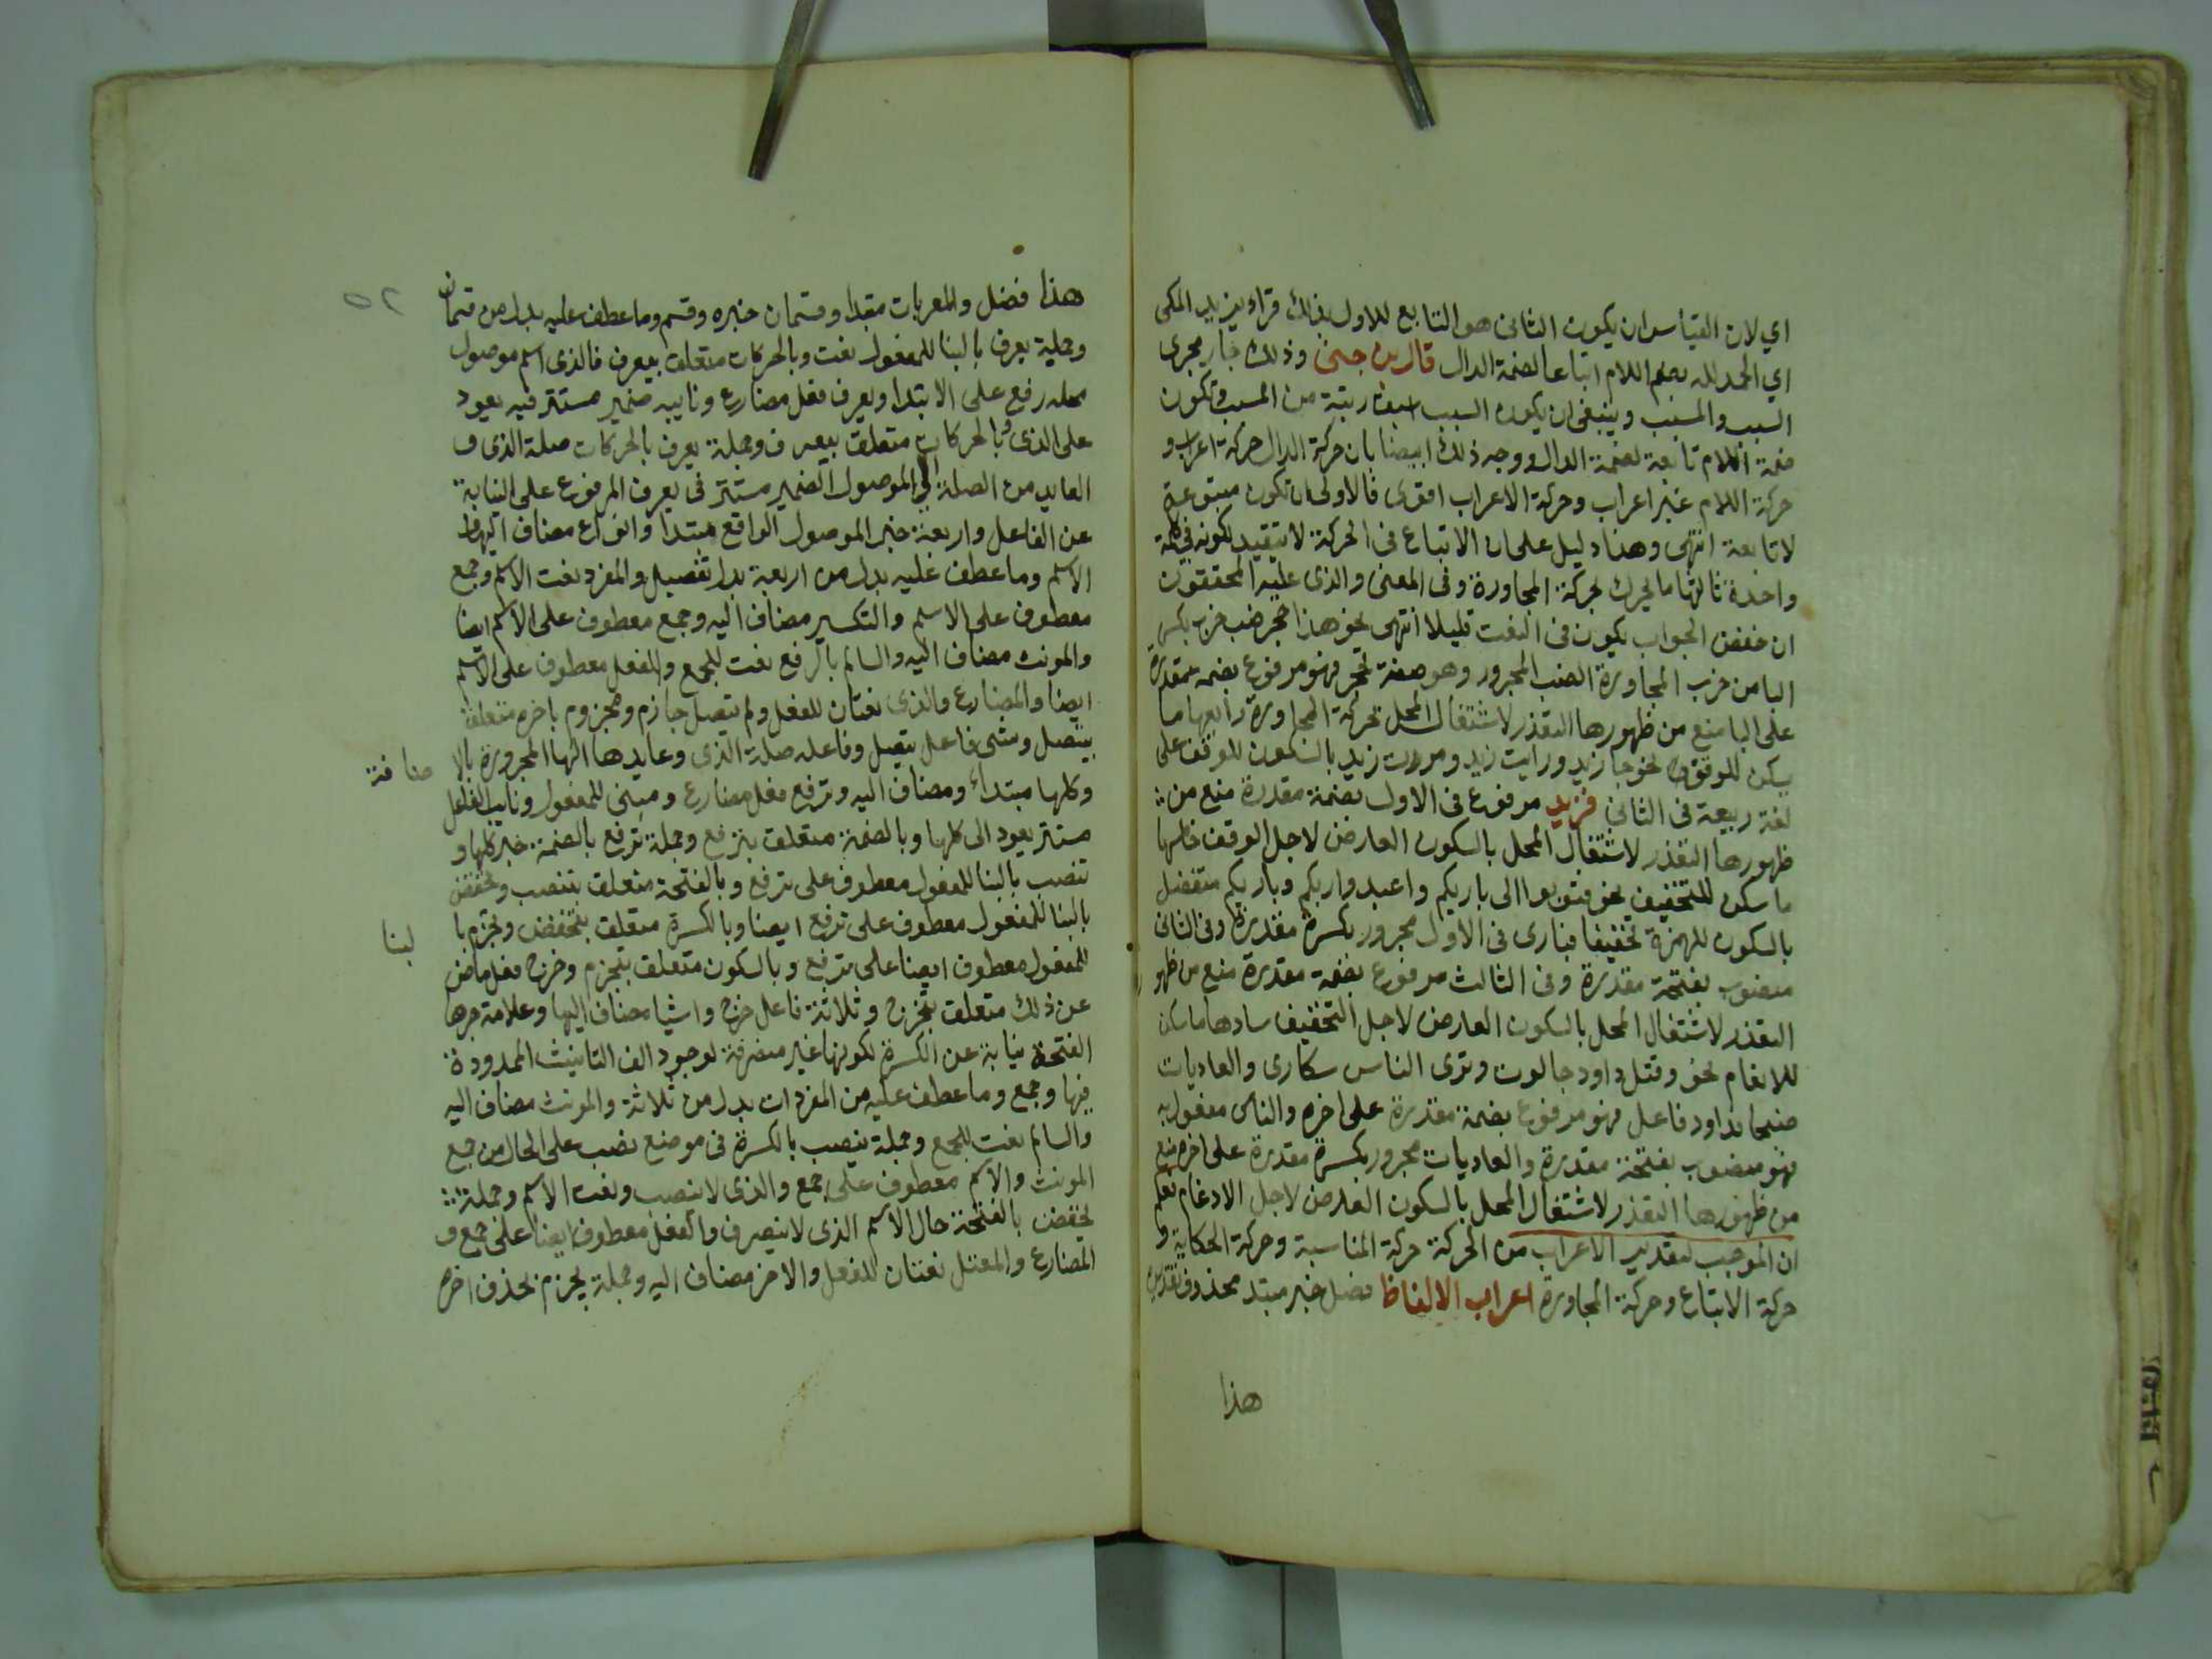 اي لان القياس ان يكون الثانى هو التابع للاول بذلك قراء يزيد المكى
اي الحمد لله بضم اللام اتباعا لضمة الدال قال بن جنى وذلك جار مجرى
السبب والمسبب وينبغى ان يكون السبب اسبق رتبة من المسبب وتكون
ضمة اللام تابعة لضمة الدال ووجه ذلك ايضا بان حركة الدال حركة اعراب و
حركة اللام غير اعراب وحركة الاعراب اقوى فالاولى ان تكون متبوعة
لا تابعة انتهى وهذا دليل على ان الاتباع فى الحركة لا يتقيد بكونه فى كلمة
واحدة ثالثها ما لحرك لحركة المجاورة وفى المعنى والذى عليه المحققون
ان خفض الجواب يكون فى النعت قليلا انتهى نحو هذا حجر ضب خرب بكسر
البا من خرب المجاورة الضب المجرور وهو صفة لحجر فهو مرفوع بضمة مقدرة
على البا منع من ظهورها التعذر لاشتغال المحل بحركة المجاورة رابعها ما
سكن للوقف نحو جا زيد ورايت زيد ومررت زيد بالسكون للوقف على
لغة ربيعة فى الثانى فزيد مرفوع فى الاول بضمة مقدرة منع من
ظهورها التعذر لاشتغال المحل بالسكون العارض لاجل الوقف خامسها
ما سكن للتخفيف نحو فتوبوا الى باريكم واعبدوا ربكم وباريكم
بالسكون للهمزة تخفيفا فبارى فى الاول مجرور بكسرة مقدرة وفى الثانى
منصوب بفتحة مقدرة وفى الثالث مرفوع بضمة مقدرة منع من ظهور
التعذر لاشتغال المحل بالسكون العارض لاجل التخفيف سادسها ما سكن
للادغام نحو وقتل داود جالوت وترى الناس سكارى والعاديات
ضبحا فداود فاعل فهو مرفوع بضمة مقدرة على اخره والناس مفعول به
فهو منصوب بفتحة مقدرة والعاديات مجرور بكسرة مقدرة على اخره منع
من ظهورها التعذر لاشتغال المحل بالسكون العارض لاجل الادغام
ان الموجب لتقدير الاعراب من الحركة حركة المناسبة وحركة الحكاية و
حركة الاتباع وحركة المجاورة اعراب الالفاظ فصل خبر مبتد محذوف تقديره
هذا
٥٢
هذا فصل والمعربات مبتدا وقسمان خبره وقسم وما عطف عليه بدل من قسمان
وجملة يعرف بالبنا للمفعول نعت وبالحركات متعلق بيعرف فالذى اسم موصول
محله رفع على الابتدا ويعرف فعل مضارع ونايبه ضمير مستتر فيه يعود
على الذى وبالحركات متعلق بيعرف وجملة يعرف بالحركات صلة الذى و
العايد من الصلة الى الموصول الضمير مستتر فى يعرف المرفوع على النيابة
عن الفاعل واربعة خبر الموصول الواقع مبتدا وانواع مضاف اليها و
الاسم وما عطف عليه بدل من اربعة بدل تفصيل والمفرد نعت الاسم وجمع
معطوف على الاسم والتكسير مضاف اليه وجمع معطوف على الاسم ايضا
والمونث مضاف اليه والسالم بالرفع نعت للجمع والفعل معطوف على الاسم
ايضا والمضارع والذى نعتان للفعل ولم يتصل جازم ومجزوم باخره متعلق
بيتصل وشى فاعل يتصل وفاعله صلة الذى وعايدها الها المجرورة بالا
ضافة
وكلها مبتداء ومضاف اليه وترفع فعل مضارع ومبنى للمفعول ونايب الفاعل
مستتر يعود الى كلها وبالضمة متعلق بترفع وجملة ترفع بالضمة خبر كلها و
تنصب بالبنا للمفعول معطوف على ترفع وبالفتحة متعلق بتنصب وتخفض
بالبنا للمفعول معطوف على ترفع ايضا وبالكسرة متعلق بتخفض وتجزم با
لبنا
للمفعول معطوف ايضا على ترفع وبالسكون متعلق بتجزم وخرج فعل ماض
عن ذلك متعلق بخرج وثلاثة فاعل خرج واشيا مضاف اليها وعلامة جرها
الفتحة نيابة عن الكسرة لكونها غير منصرفة لوجود الف التانيث الممدودة
فيها وجمع وما عطف عليه من المفردات بدل من ثلاثة والمونث مضاف اليه
والسالم نعت للجمع وجملة ينصب بالكسرة فى موضع نصب على الحال من جمع
المونث والاسم معطوف على جمع والذى لا ينصب ونعت الاسم وجملة
يخفض بالفتحة حال الاسم الذى لا ينصرف والفعل معطوف ايضا على جمع و
المضارع والمعتل نعتان للفعل والاخر مضاف اليه وجملة يجزم بحذف اخره